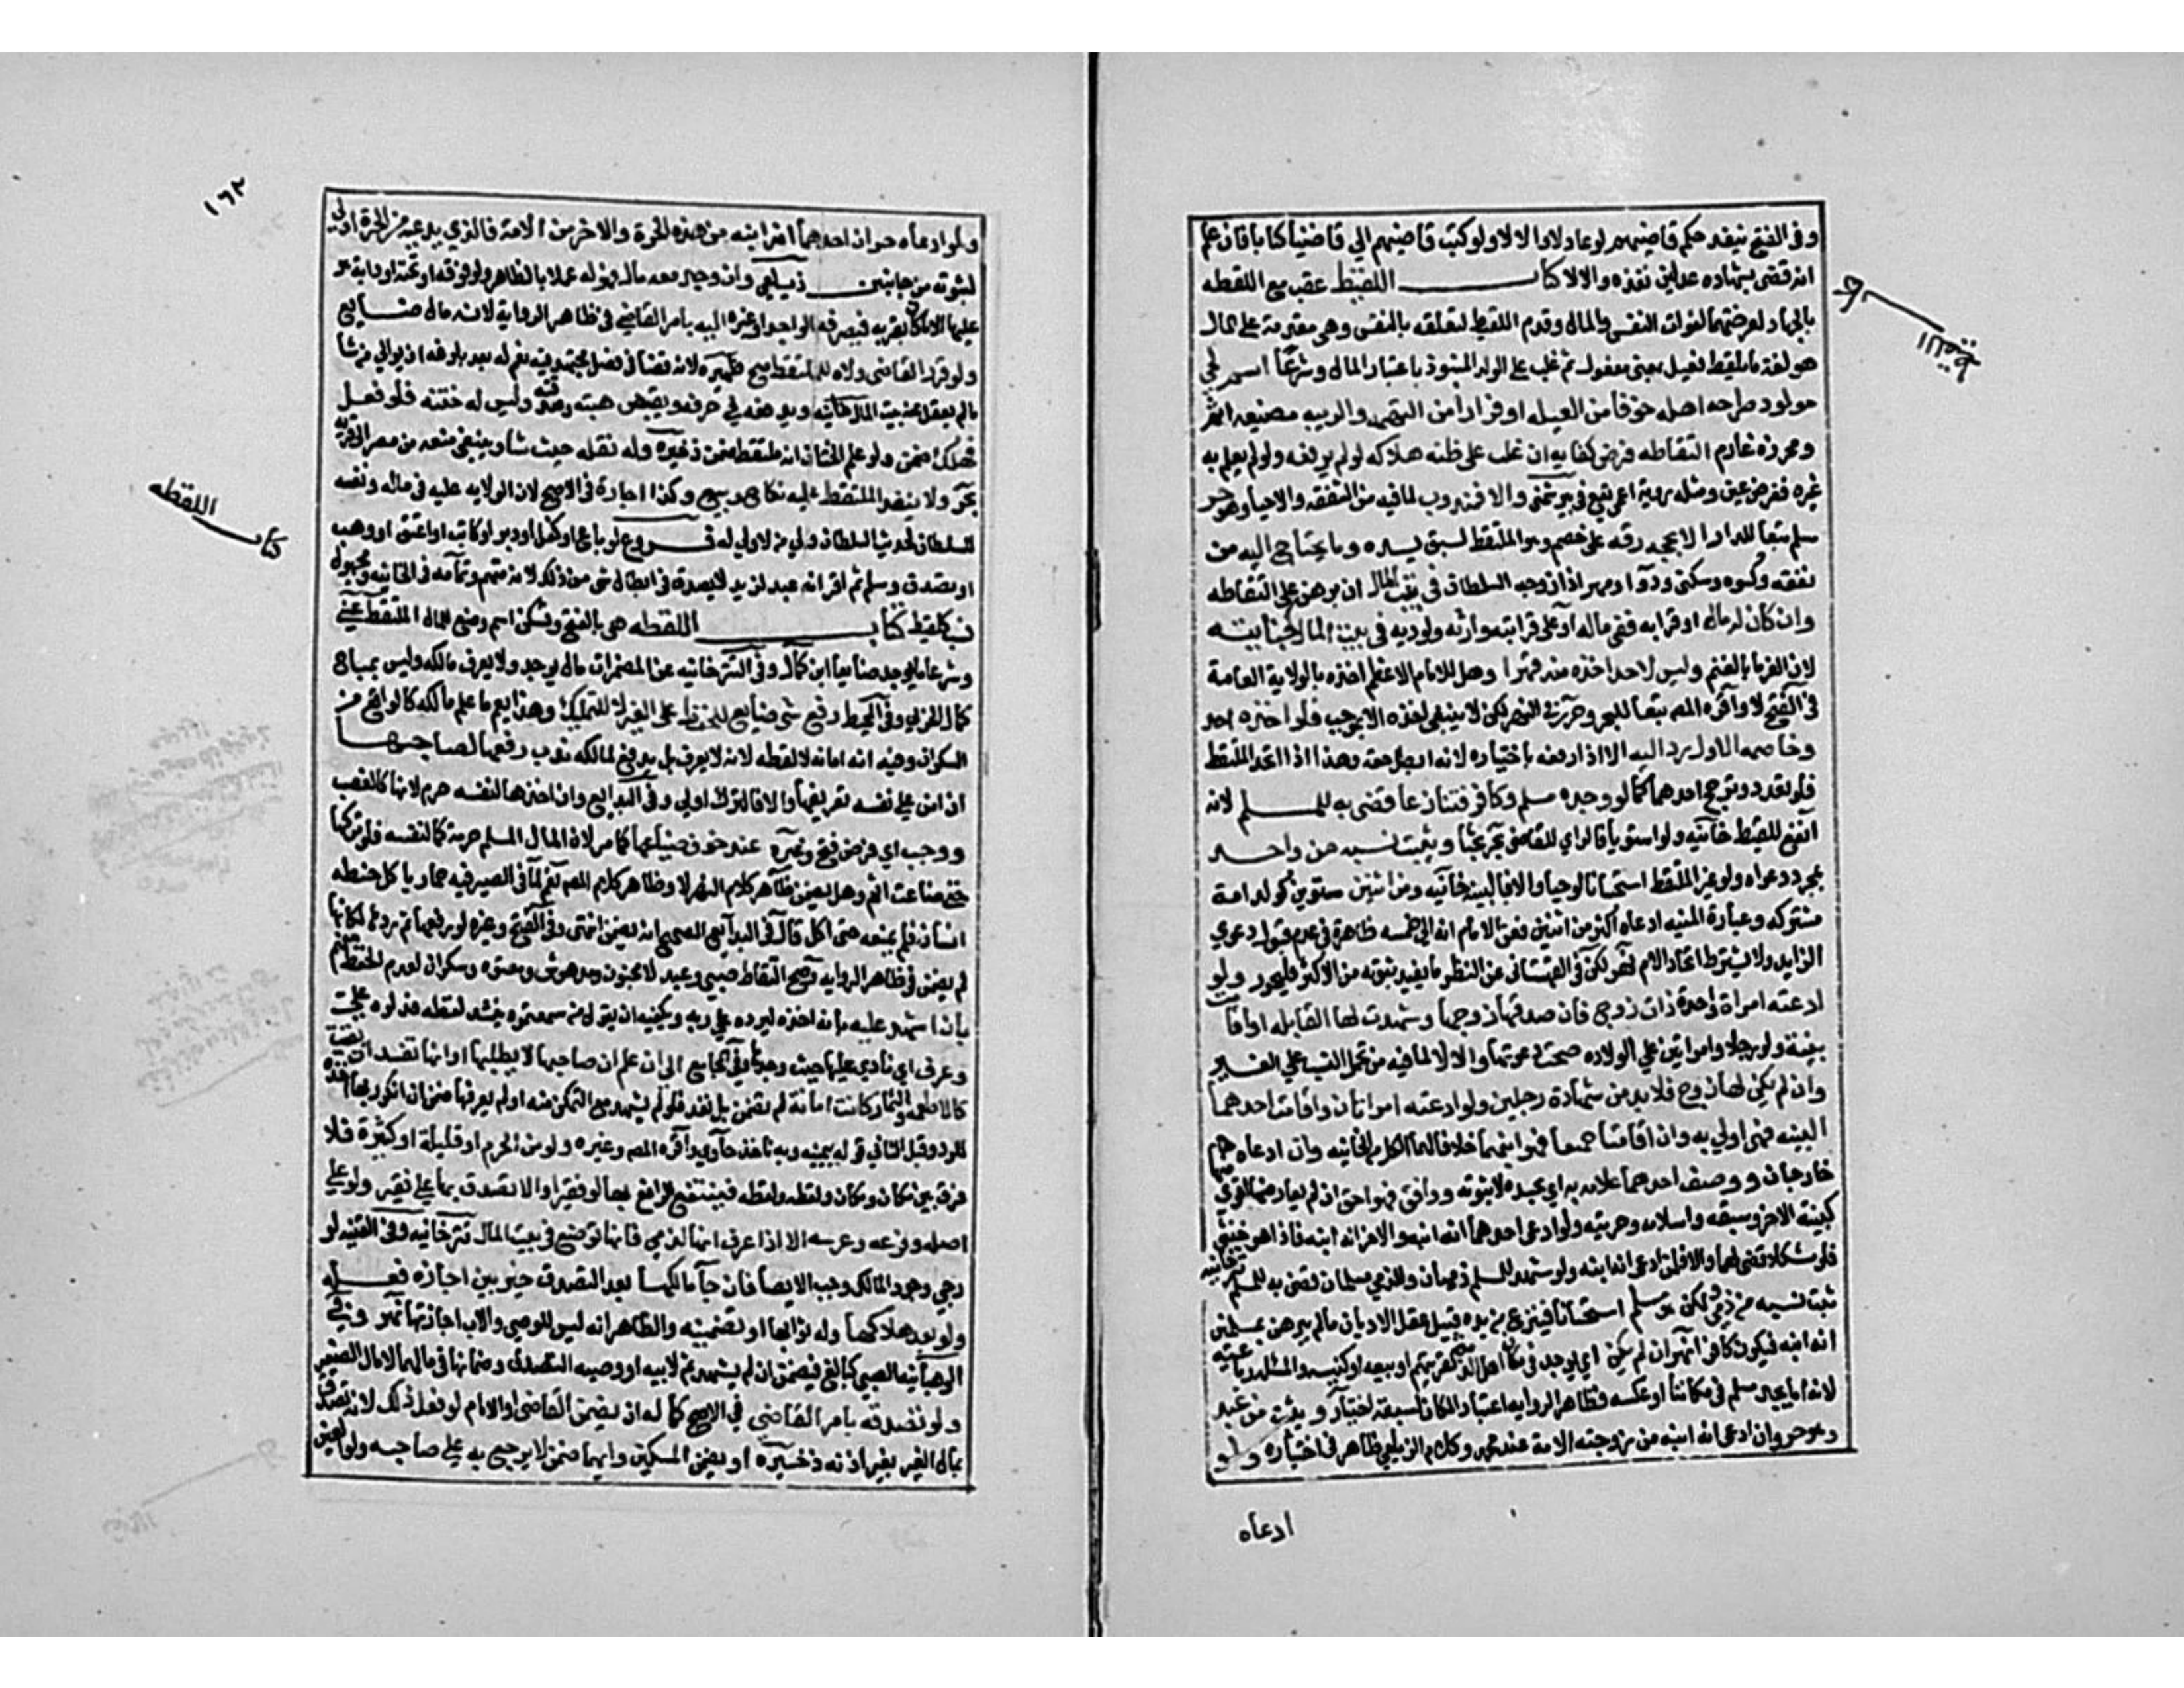 وفى الفتح ينفذ حكم قاضيهم لو عادلا والا لا ولو كتب قاضيهم الي قاضينا كتابا فان علم
انه قضى بشهادة عدلين نفذه والا لا كتاب اللقيط عقبه مع اللقطه
بالجهاد لعرضتهما لفوات النفس والمال وقدم اللقيط لتعلقه بالنفس وهى مقدمة على المال
هو لغة ما يلقط فعيل بمعنى مفعول ثم غلب على الولد المنبوذ باعتبار المال وشرعا اسم لحي
مولود طرحه اهله خوفا من العيله او فرارا من التهمه والريبه مضيعه اثم
ومحرزه غانم التقاطه فرض كفايه ان غلب على ظنه هلاكه لو لم يرفعه ولو لم يعلم به
غيره ففرض عين ومثله روية اعمى يقع فى بير شمنى والا فمندوب لما فيه من الشفقه والاحيا وهو حر
مسلم تبعا للدار الا بحجه رقه على خصم وهو الملتقط لسبق يده وما يحتاج اليه من
نفقه وكسوه وسكنى ودوا ومهر اذا زوجه السلطان فى بيت المال ان برهن على التقاطه
وان كان له مال او قرابه ففى ماله او على قرابته وارثه ولو ديه فى بيت المال كجنايته
لان الغرم بالغنم وليس لاحد اخذه منه قهرا وهل للامام الاعظم اخذه بالولاية العامة
فى الفتح لا واقره المص تبعا للبحر وحرر فى النهر لكن لا ينبغى اخذه الا بموجب فلو اخذه احد
وخاصمه الاول رد اليه الا اذا دفعه باختياره لانه ابطل حقه وهذا اذا اتحد الملتقط
فلو تعدد وترجح احدهما كما لو وجده مسلم وكافر فتنازعا قضى به للمسلم لانه
انفع للقيط خانيه ولو استويا فالراي للقاضى بحر بحثا ويثبت نسبه من واحد
بمجرد دعواه ولو غير الملتقط استحسانا لو حيا والا فبالبينه خانيه ومن اثنين مستويين كولد امة
مشتركه وعبارة المنيه ادعاه اكثر من اثنين فعن الامام انه الى خمسه ظاهرة فى عدم قبول دعوي
الزايد ولا يشترط اتحاد الام نهر لكن فى القهستانى عن النظم ما يفيد ثبوته من الاكثر فليحرر ولو
ادعته امراة واحدة ذات زوج فان صدقها زوجها وشهدت لها القابله او اقامت
بينة ولو رجلا وامراتين على الولاده صحت دعوتها والا لا لما فيه من تحمل النسب على الغير
وان لم يكن لها زوج فلا بد من شهادة رجلين ولو ادعته امراتان واقامت احدهما
البينه فهى اولي به وان اقامتا جميعا فهو ابنهما خلافا لهما الكل من الخانيه وان ادعاه
خارجان ووصف احدهما علامه به اي بجسده لا بثوبه ووافق فهو احق ان لم يعارضها اقوي منها
كبينة الاخر وسبقه واسلامه وحريته ولو ادعى احدهما انه ابنه والاخر انه ابنته فاذا هو خنثى
فلو مشكلا قضى لهما والا فلمن ادعى انه ابنه ولو شهد للمسلم ذميان وللذمي مسلمان قضى به للمسلم تتارخانيه
ثبت نسبه من ذمي ولكن هو مسلم استحسانا فينزع من يده قبيل عقل الاديان ما لم يبرهن بمسلمين
انه ابنه فيكون كافرا نهر ان لم يكن اي يوجد فى مكان اهل الذمة كقريتهم او بيعه او كنيسه والمسئله رباعيه
لانه اما يجده مسلم فى مكاننا او عكسه فظاهر الروايه اعتبار المكان لسبقه اختيار ويثبت من عبد
وهو حر وان ادعى انه ابنه من زوجته الامة عند محمد وكلام الزيلعي ظاهر فى اختياره ولو
ادعاه
كتاب اللقيط
١٦٢
ولو ادعاه حران احدهما انه ابنه من هذه الحرة والاخر من الامة فالذي يدعيه من الحرة اولي
لثبوته من جانبين زيلعي وان وجد معه مال فهو له عملا بالظاهر ولو فوقه او تحته او دابة هو
عليها لا ما كان بقربه فيصرفه الواجد او غيره اليه بامر القاضى فى ظاهر الرواية لانه مال ضايع
ولو قرر القاضى ولاه للملتقط صح ظهيريه لانه قضا فى فصل مجتهد فيه نعم له بعد بلوغه ان يوالي من شا
ما لم يعقل عنه بيت المال خانيه ويدفعه في حرفه ويقبض هبته وصدقته وليس له ختنه فلو فعل
فهلك ضمن ولو علم الختان انه ملتقط ضمن ذخيره وله نقله حيث شا وينبغى منعه من مصر الى قريه
بحر ولا ينفذ للملتقط عليه نكاح وبيع وكذا اجارة فى الاصح لان الولايه عليه فى ماله ونفسه
للسلطان لحديث السلطان ولى من لا ولى له فروع لو باع او كفل او دبر او كاتب او اعتق او وهب
او تصدق وسلم ثم اقر انه عبد لزيد لا يصدق فى ابطال شى من ذلك لانه متهم وتمامه فى الخانيه ومجهول
نسب كلقيط كتاب اللقطه هى بالفتح وتسكن اسم وضع للمال الملتقط عينى
وشرعا مال يوجد ضايعا ابن كمال وفى التتر خانيه عن المضمرات مال يوجد ولا يعرف مالكه وليس بمباح
كمال الحربي وفى المحيط رفع شى ضايع للحفظ على الغير لا للتمليك وهذا يعم ما علم مالكه كالواقع من
السكران وفيه انه امانه لا لقطه لانه لا يعرف بل يدفع لمالكه ندب رفعها لصاحبها
ان امن على نفسه تعريفها والا فالترك اولي وفى البدايع وان اخذها لنفسه حرم لانها كالغصب
ووجب اي فرض فتح وغيره عند خوف ضياعها كما مر لان لمال المسلم حرمة كما لنفسه فلو تركها
حتى ضاعت اثم وهل يضمن ظاهر كلام النهر لا وظاهر كلام المص نعم لما فى الصيرفيه حمار ياكل حنطه
انسان فلم يمنعه حتى اكل قال فى البدايع الصحيح انه يضمن انتهى وفى الفتح وغيره لو رفعها ثم ردها لمكانها
لم يضمن فى ظاهر الروايه وصح التقاط صبي وعبد لا مجنون ومدهوش ومعتوه وسكران لعدم الحفظ منهم
بان اشهد عليه بانه اخذه ليرده علي ربه ويكفيه ان يقول من سمعتموه ينشد لقطه فدلوه علي
وعرف اي نادي عليها حيث وجدها وفي الجامع الى ان علم ان صاحبها لا يطلبها او انها تفسد ان بقيت
كالاطعمه والثمار كانت امانة لم تضمن بلا تعد فلو لم يشهد مع التمكن منه او لم يعرفها ضمن ان انكر ربها اخذه
للرد وقبل الثانى قوله بيمينه وبه ناخذ حاوي واقره المص وغيره ولو من الحرم او قليلة او كثيرة فلا
فرق بين مكان ومكان ولقطه ولقطه فينتفع الرافع بها لو فقيرا والا تصدق بها على فقير ولو على
اصله وفرعه وعرسه الا اذا عرف انها لذمي فانها توضع فى بيت المال تترخانيه وفى القنيه لو
رجي وجود المالك وجب الايصا فان جا مالكها بعد التصدق خير بين اجازه فعله
ولو بعد هلاكها وله ثوابها او تضمينه والظاهر انه ليس للوصى والاب اجازتها نهر وفي
الوهبانيه الصبي كبالغ فيضمن ان لم يشهد ثم لابيه او وصيه التصدق وضمانها فى مالهما لا مال الصغير
ولو تصدقه بامر القاضي في الاصح كما له ان يضمن القاضى او الامام لو فعل ذلك لانه تصدق
بمال الغير بغير اذنه ذخيره او يضمن المسكين وايهما ضمن لا يرجع به على صاحبه ولو العين
كتاب اللقطه